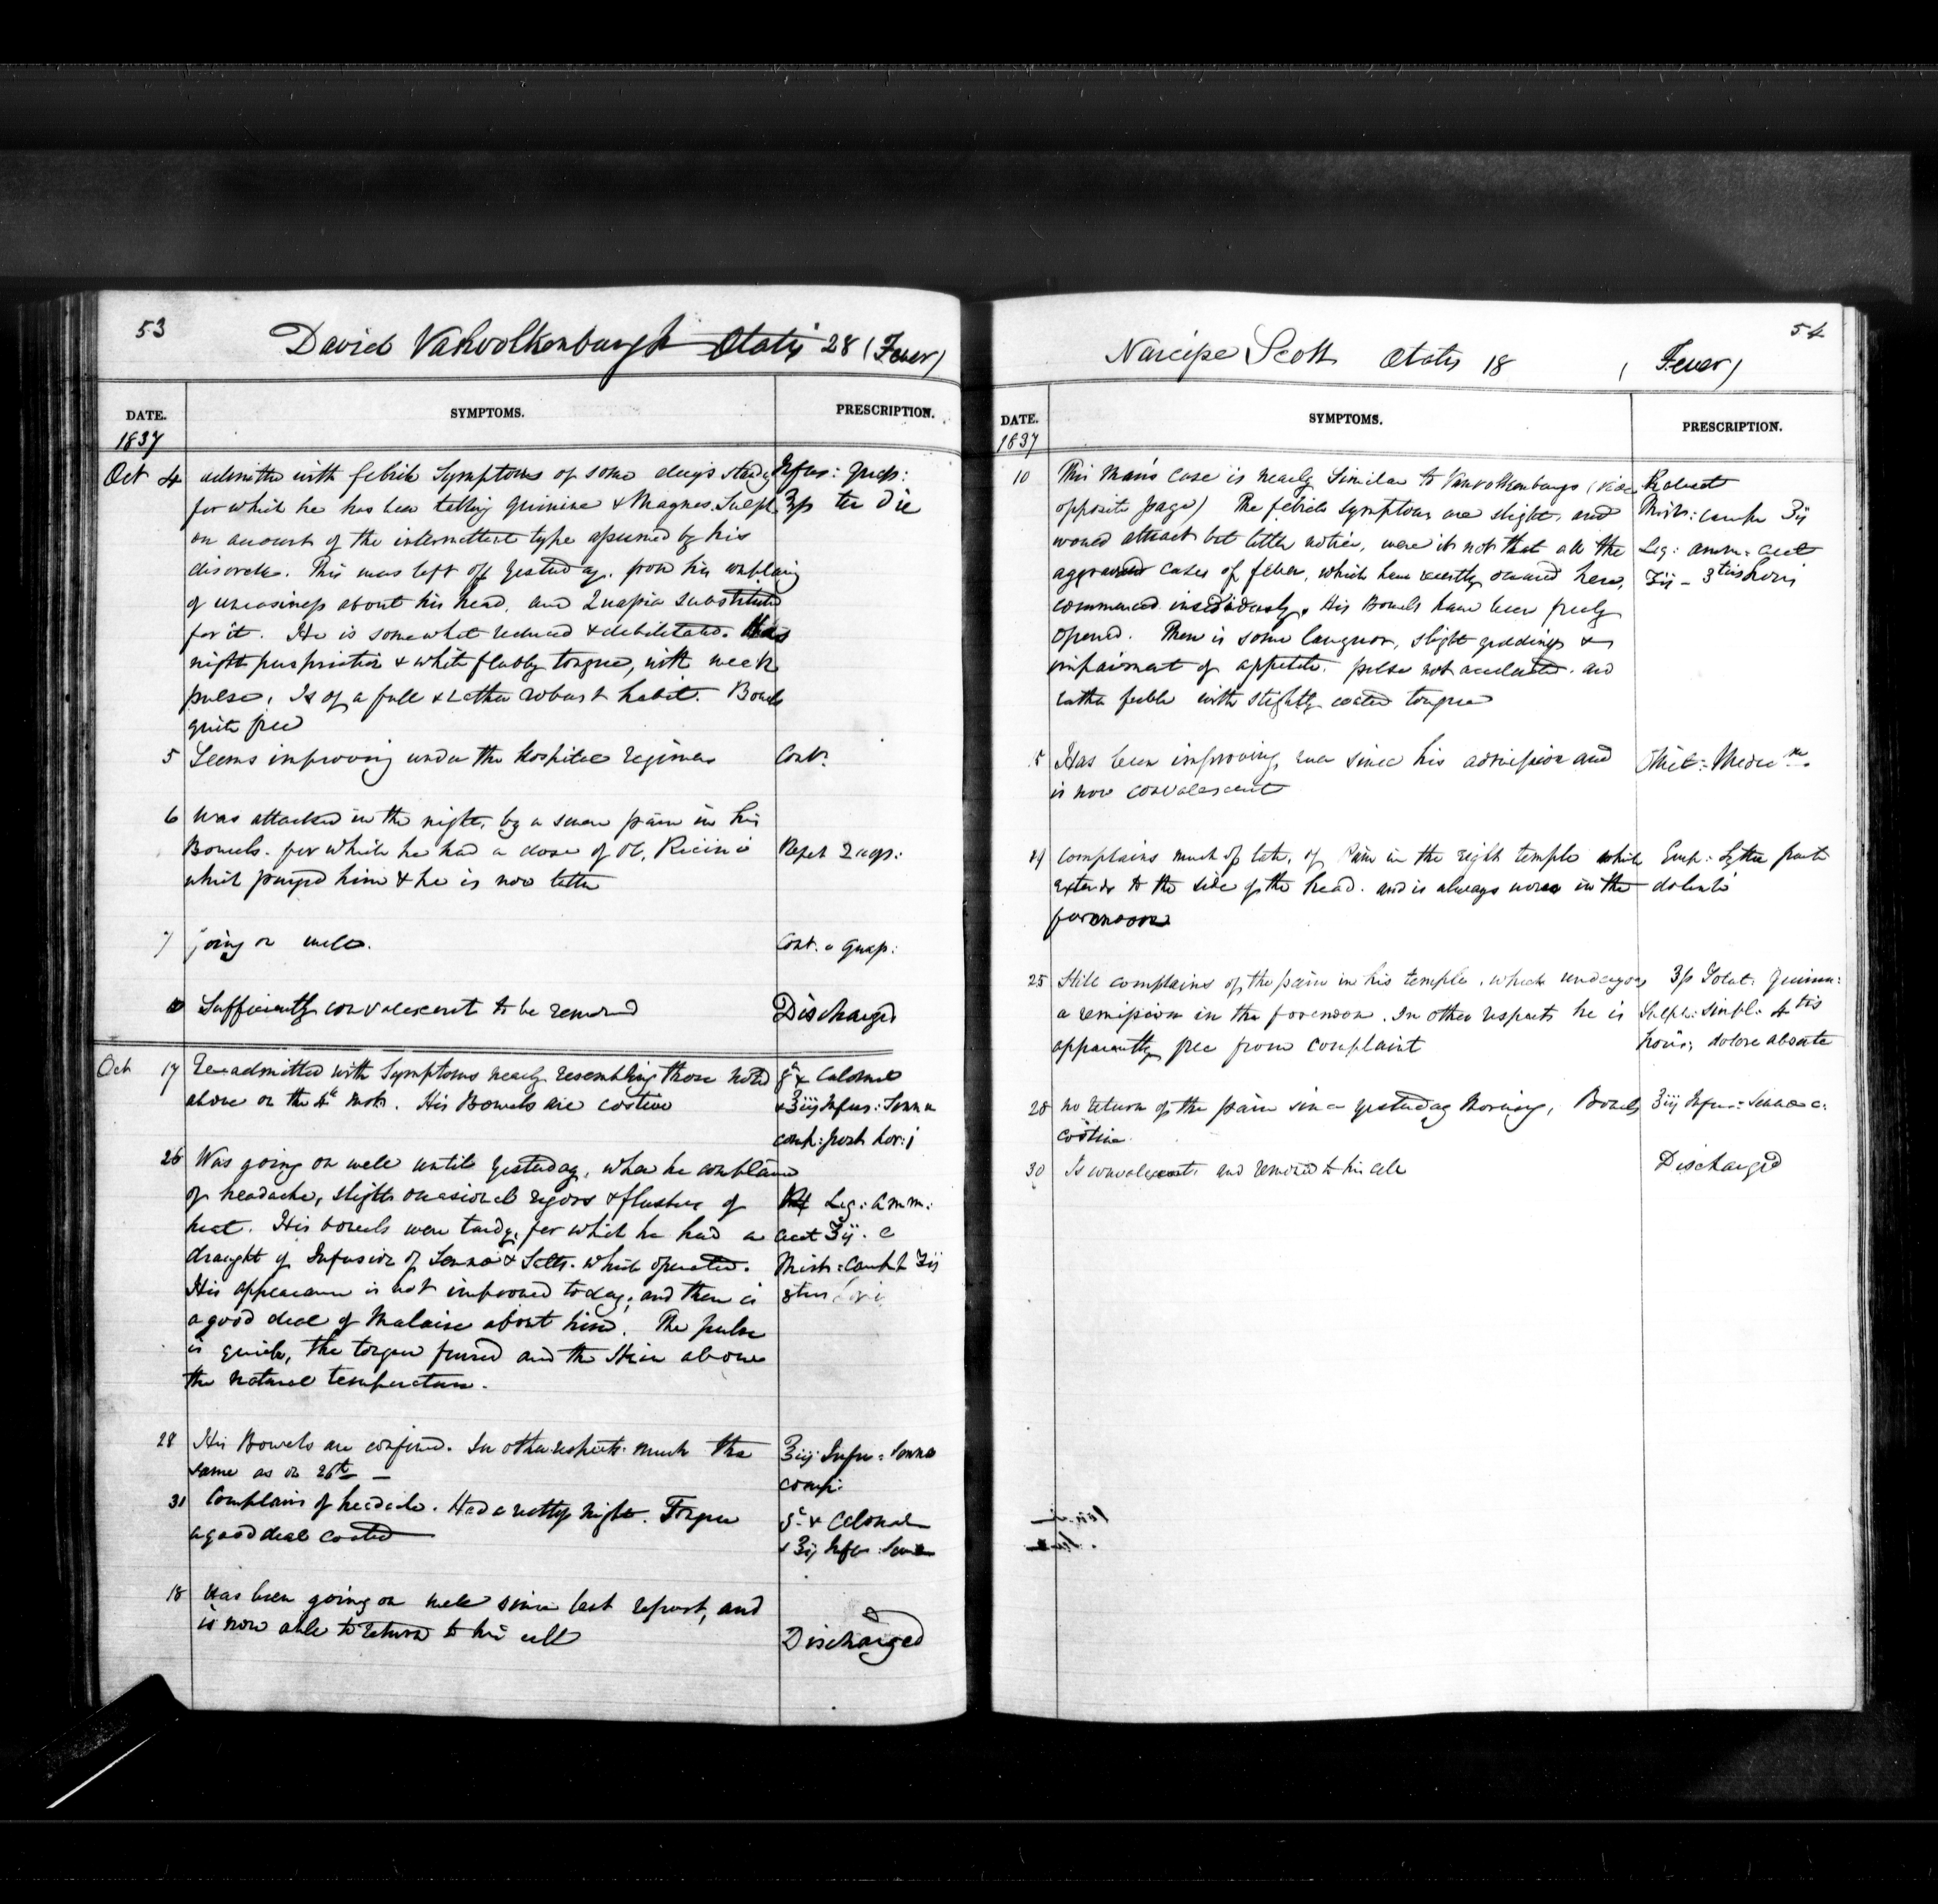 53
David Vanvolkenburgh Ætatis 28 (Fever)
DATE. SYMPTOMS. PRESCRIPTION.
1837
Oct 4 admitted with febrile Symptoms of some days standg Infus: Quas:
for which he has been taking quinine & Magnes. Sulph. ʒſs ter Die
on account of the intermittent type assumed by his
disorder. This was left off yesterday. from his complaing
of uneasiness about his head, and Quassia substituted
for it. He is somewhat reduced & debilitated. Has
night perspiration & white flabby tongue, with weak
pulse. Is of a full & rather robust habit. Bowels
quite free
5 Seems improving under the Hospital regimen Cont:
6 Was attacked in the night, by a severe pain in his
Bowels. for which he had a dose of Ol. Ricini Repet Quas:
which purged him & he is now better
7 going on well. Cont. Quas:
10 Sufficiently convalescent to be removed Discharged
Oct 17 Re-admitted with Symptoms nearly resembling those noted gr x Calomel
above on the 4th Inst. His Bowels are costive & ℥iij Infus: Senna
comp: post hor: j
26 Was going on well until yesterday, when he complaind
of headache, slight occasional rigors & flushes of Liq: Amm:
heat. His bowels were tardy, for which he had a acet ℥ij. c
draught of Infusion of Senna & Salts. which operated. Mist: Camph ℥ij
His appearance is not improved today, and there is
a good deal of Malaise about him. The pulse
is quick, the tongue furred and the Skin above
the natural temperature.
28 His Bowels are confined. In other respects much the ℥iij Infus: Senna
same as on 26th — comp:
31 Complains of headache. Had a restless night. Tongue gr x Calomel
a good deal coated & ℥ij Infus: Senna
18 Has been going on well since last report, and
is now able to return to his cell Discharged
54
Narcisse Scott Ætatis 18 (Fever)
DATE. SYMPTOMS. PRESCRIPTION.
1837
10 This Man's case is nearly Similar to Vanvolkenburgs (vide Habeat
opposite page) The febrile symptoms are slight, and Mist: Camph ℥ij
would attract but little notice, were it not that all the Liq: amm: acet
aggravated cases of fever, which have recently occurred here, ℥ij — 3tiis horis
commenced insidiously. His Bowels have been freely
opened. There is some languor, slight giddiness &
impairment of appetite. pulse not accelerated. and
rather feeble with slightly coated tongue
15 Has been improving, ever since his admission and Omit: Medic
is now convalescent
24 Complains much of late, of Pain in the right temple which Emp: Lyttæ parti
extends to the side of the head. and is always worse in the dolenti
forenoon
25 Still complains of the pain in his temple, which undergoes ʒſs Solut: Quinin:
a remission in the forenoon. In other respects he is Sulph: Simpl: 4tis
apparently free from complaint horis, dolore absente
28 no return of the pain since yesterday Morning, Bowels ℥iij Infus: Sennæ c:
costive.
30 Is convalescent and removed to his cell Discharged